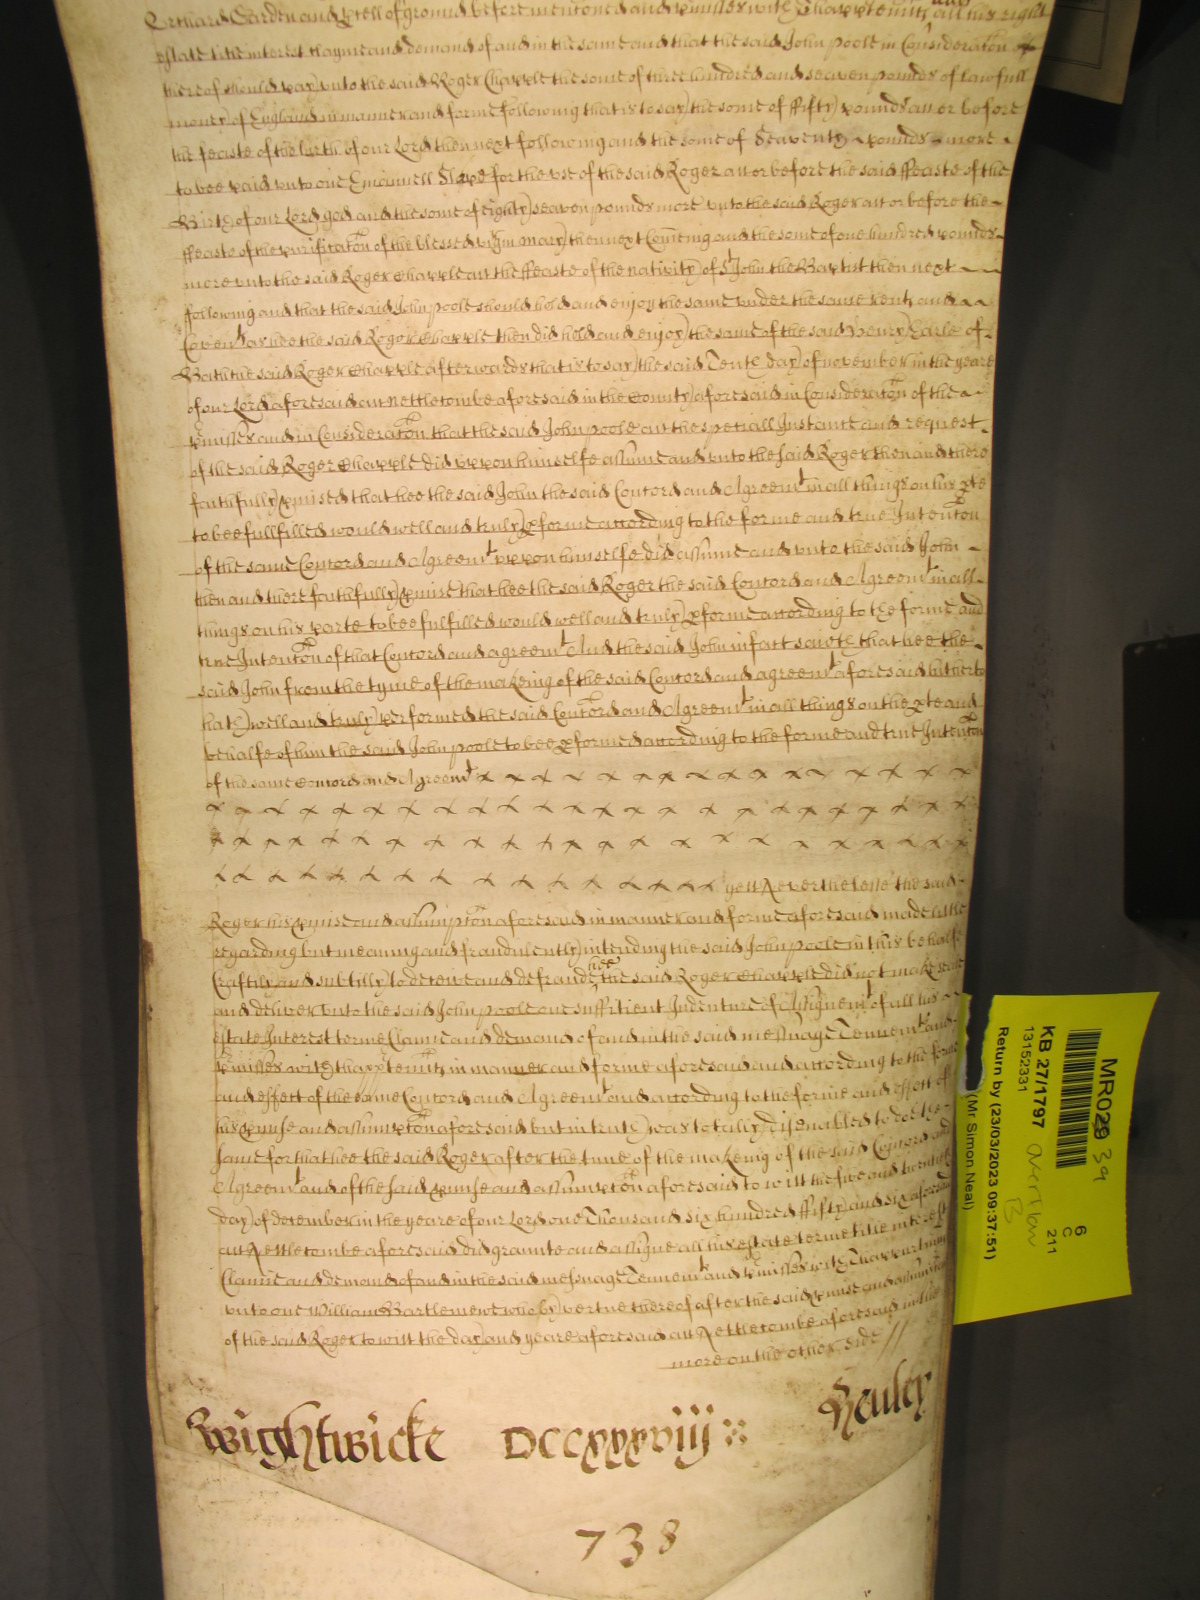 Orchard Garden and p[ar]cell of ground before mentoned and p[re]misses with Thappten[a]nts all his right
estate title interest clayme and demand of and in the same and that the said John Poole in Consideraton
thereof should pay unto the said Roger Chapple the some of three hundred and seaven pounds of lawfull
money of England in manner and forme following that is to say the some of ffifty pounds att or before
the feaste of the birth of our Lord then next following and the some of Seaventy pounds more
to bee paid unto one Emanuell for the use of the said Roger att or before the said ffeaste of the
Birth of our Lord god and the some of eighty seaven pounds more unto the said Roger att or before the
ffeaste of the purificaton of the blessed virgin Mary then next Comeing and the some of one hundred pounds
more unto the said Roger Chapple att the ffeaste of the nativity of St John the Baptist then next
following and that the said John Poole should hold and enjoy the same under the same rents and
Coven[an]ts as hee the said Roger Chapple then did hold and enjoy the same of the said Henry Earle of
Bath the said Roger Chapple afterwards that is to say the said Tenth day of november in the yeare
of our Lord aforesaid att Nettlecombe aforesaid in the County aforesaid in Consideraton of the
p[re]misses and in Consideraton that the said John Poole att the speciall Instance and request
of the said Roger Chapple did uppon himselfe assume and unto the said Roger then and there
faithfully p[ro]mised that hee the said John the said Concord and Agreem[en]t in all things on his p[ar]te
to bee fullfilled would well and truly p[er]forme according to the forme and true Intenton
of the same Concord and Agreem[en]t uppon himselfe did assume and unto the said John
then and there faithfully p[ro]mise that hee the said Roger the said Concord and Agreem[en]t in all
things on his parte to bee fulfilled would well and truly p[er]forme according to the forme and
true Intenton of that Concord and agreem[en]t And the said John in fact saieth that hee the
said John from the tyme of the makeing of the said Concord and agreem[en]t aforesaid hitherto
hath well and truly performed the said Concord and Agreem[en]t in all things on the p[ar]te and
behalfe of him the said John Poole to bee p[er]formed according to the forme and true Intenton
of the same Concord and Agreem[en]t
yett Neverthelesse the said
Roger his p[ro]mise and assumpton aforesaid in manner and forme aforesaid made little
regarding but meaning and fraudulently intending the said John Poole in this behalfe
Craftily and subtilly to deceive and defraude hee the said Roger Chapple did not make seale
and deliver unto the said John Poole one suffitient Indenture of Assignem[en]t of all his
estate Interest terme Clayme and demand of and in the said messuage Tennem[en]t and
p[re]misses with thappten[a]nts in manner and forme aforesaid and according to the forme
and effect of the same Concord and Agreem[en]t and according to the forme and effect of
his p[ro]mise and assumpton aforesaid but in truth was totally disenabled to doe the
same for that hee the said Roger after the time of the makeing of the said Concord and
Agreem[en]t and of the said p[ro]mise and assumpton aforesaid to witt the five and twentith
day of december in the yeare of our Lord one Thousand six hundred ffifty and six aforesaid
att Nettlecombe aforesaid did graunte and assigne all his estate terme title interest
Clayme and demand of and in the said messuage Tennem[en]t and p[re]misses with Thappurten[a]nts
unto one William Bartlemewe who by vertue thereof after the said p[ro]mise and assumpton
of the said Roger to witt the day and yeare aforesaid att Nettlecombe aforesaid
more on the other side //
Wightwicke DCCxxxviij Henley
738
MR029 39
KB 27/1797 overflow B
13152331
Return by (23/03/2023 09:37:51)
(Mr Simon Neal)
6
C
211